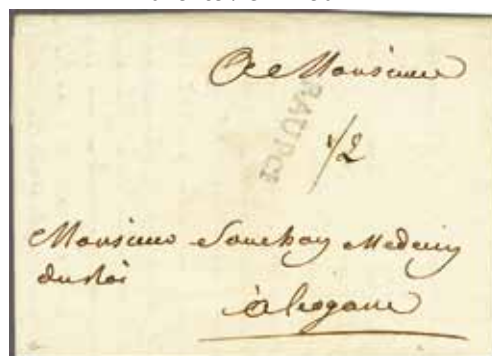 A Monsieur
1/2
Monsieur Souchay Medecin
du Roi
à Leogane